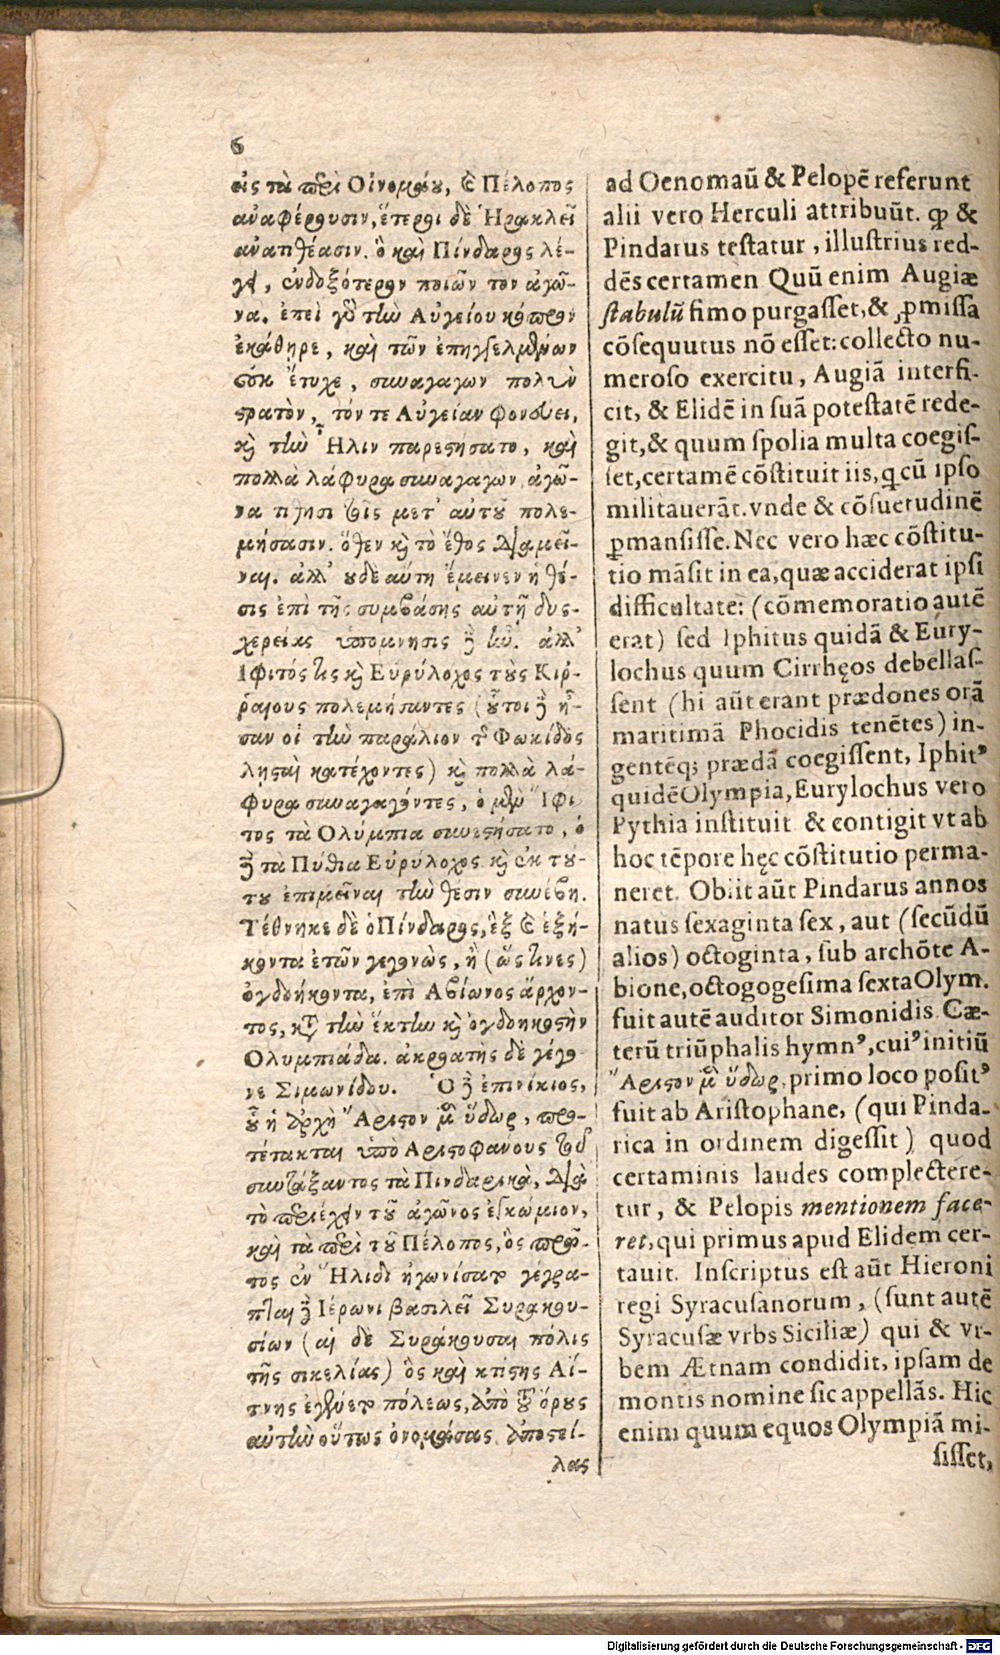 6
εἰς τὰ περὶ Οἰνομάου, καὶ Πέλοπος
ἀναφέρουσιν, ἕτεροι δὲ Ἡρακλεῖ
ἀνατιθέασιν. ὃ καὶ Πίνδαρος λέ-
γει, ἐνδοξότερον ποιῶν τὸν ἀγῶ-
να. ἐπεὶ γὸ τὴν Αὐγείου κόπρον
ἐκάθηρε, καὶ τῶν ἐπηγγελμένων
οὐκ ἔτυχε, συναγαγὼν πολὺν
στρατὸν, τόν τε Αὐγείαν φονεύει,
κὶ τὴν Ἦλιν παρεστήσατο, καὶ
πολλὰ λάφυρα συναγαγὼν ἀγῶ-
να τίθησι τοῖς μετ' αὐτοῦ πολε-
μήσασιν. ὅθεν κὶ τὸ ἔθος διαμεῖ-
ναι. ἀλλ' οὐδὲ αὕτη ἔμεινεν ἡ θέ-
σις ἐπὶ τῆς συμβάσης αὐτῇ δυς-
χερείας ὑπόμνησις δὲ ἦν. ἀλλ'
Ἴφιτός τις κὶ Εὐρύλοχος τοὺς Κιρ-
ῥαίους πολεμήσαντες (οὗτοι δὲ ἦ-
σαν οἱ τὴν παράλιον τῆς Φωκίδος
λῃσταὶ κατέχοντες) κὶ πολλὰ λά-
φυρα συναγαγόντες, ὁ μὲν Ἴφι
τος τὰ Ὀλύμπια συνεστήσατο, ὁ
δὲ τὰ Πύθια Εὐρύλοχος. κὶ ἐκ τού-
του ἐπιμεῖναι τὴν θέσιν συνέβη.
Τέθνηκε δὲ ὁ Πίνδαρος, ἓξ καὶ ἑξή-
κοντα ἐτῶν γεγονὼς, ἢ (ὥς τινες)
ὀγδοήκοντα, ἐπὶ Ἀβίωνος ἄρχον-
τος, κατὰ τὴν ἕκτην κὶ ὀγδοηκοστὴν
Ὀλυμπιάδα. ἀκροατὴς δὲ γέγο
νε Σιμωνίδου. Ὁ δὲ ἐπινίκιος,
οὗ ἡ ἀρχὴ Ἄριστον μὲν ὕδωρ, προ-
τέτακται ὑπὸ Ἀριστοφάνους τοῦ
συντάξαντος τὰ Πινδαρικὰ, διὰ
τὸ περιέχειν τοῦ ἀγῶνος ἐγκώμιον,
καὶ τὰ περὶ τοῦ Πέλοπος, ὃς πρῶ-
τος ἐν Ἤλιδι ἠγωνίσατο γέγρα-
πται δὲ Ἱέρωνι βασιλεῖ Συρακου-
σίων (αἱ δὲ Συράκουσαι πόλις
τῆς σικελίας) ὃς καὶ κτίστης Αἴ-
τνης ἐγένετο πόλεως, ἀπὸ τοῦ ὄρους
αὐτὴν οὕτως ὀνομάσας. ἀποστεί-
λας
ad Oenomaū & Pelopē referunt
alii vero Herculi attribuūt. ꝙ &
Pindarus testatur, illustrius red-
dēs certamen Quū enim Augiæ
stabulū fimo purgasset, & ꝓmissa
cōsequutus nō esset: collecto nu-
meroso exercitu, Augiā interfi-
cit, & Elidē in suā potestatē rede-
git, & quum spolia multa coegis-
set, certamē cōstituit iis, q cū ipso
militauerāt. vnde & cōsuetudinē
ꝑmansisse. Nec vero hæc cōstitu-
tio māsit in ea, quæ acciderat ipsi
difficultate: (cōmemoratio autē
erat) sed Iphitus quidā & Eury-
lochus quum Cirrhęos debellas-
sent (hi aūt erant prædones orā
maritimā Phocidis tenētes) in-
gentēq; prædā coegissent, Iphitꝰ
quidē Olympia, Eurylochus vero
Pythia instituit & contigit vt ab
hoc tēpore hęc cōstitutio perma-
neret. Obiit aūt Pindarus annos
natus sexaginta sex, aut (secūdū
alios) octoginta, sub archōte A-
bione, octogogesima sexta Olym.
fuit autē auditor Simonidis. Cæ-
terū triūphalis hymnꝰ, cuiꝰ initiū
Ἄριστον μὲν ὕδωρ, primo loco positꝰ
fuit ab Aristophane, (qui Pinda-
rica in ordinem digessit) quod
certaminis laudes complectere-
tur, & Pelopis mentionem face-
ret, qui primus apud Elidem cer-
tauit. Inscriptus est aūt Hieroni
regi Syracusanorum, (sunt autē
Syracusæ vrbs Siciliæ) qui & vr-
bem Ætnam condidit, ipsam de
montis nomine sic appellās. Hic
enim quum equos Olympiā mi-
sisset,
Digitalisierung gefördert durch die Deutsche Forschungsgemeinschaft - DFG